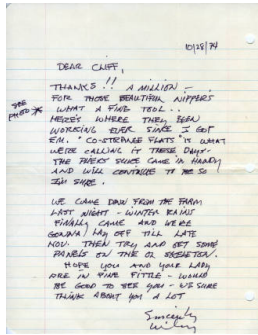 10/28/74
DEAR CLIFF,
THANKS!! A MILLION -
FOR THOSE BEAUTIFUL NIPPERS
WHAT A FINE TOOL..
HERE'S WHERE THEY BEEN
WORKING EVER SINCE I GOT
EM. "CO-STRANGE FLATS" IS WHAT
WE'RE CALLING IT THESE DAYS.
THE SURE CAME IN HANDY
AND WILL CONTINUE TO BE SO
I'M SURE.
WE CAME DOWN FROM THE FARM
LAST NIGHT - WINTER RAINS
FINALLY CAME AND WE'RE
GONNA LAY OFF TILL LATE
NOV. THEN TRY AND GET SOME
PANELS ON THE OL SKELETON.
HOPE YOU AND YOUR LADY
ARE IN FINE FITTLE - WOULD
BE GOOD TO SEE YOU - WE SURE
THINK ABOUT YOU A LOT
Sincerely